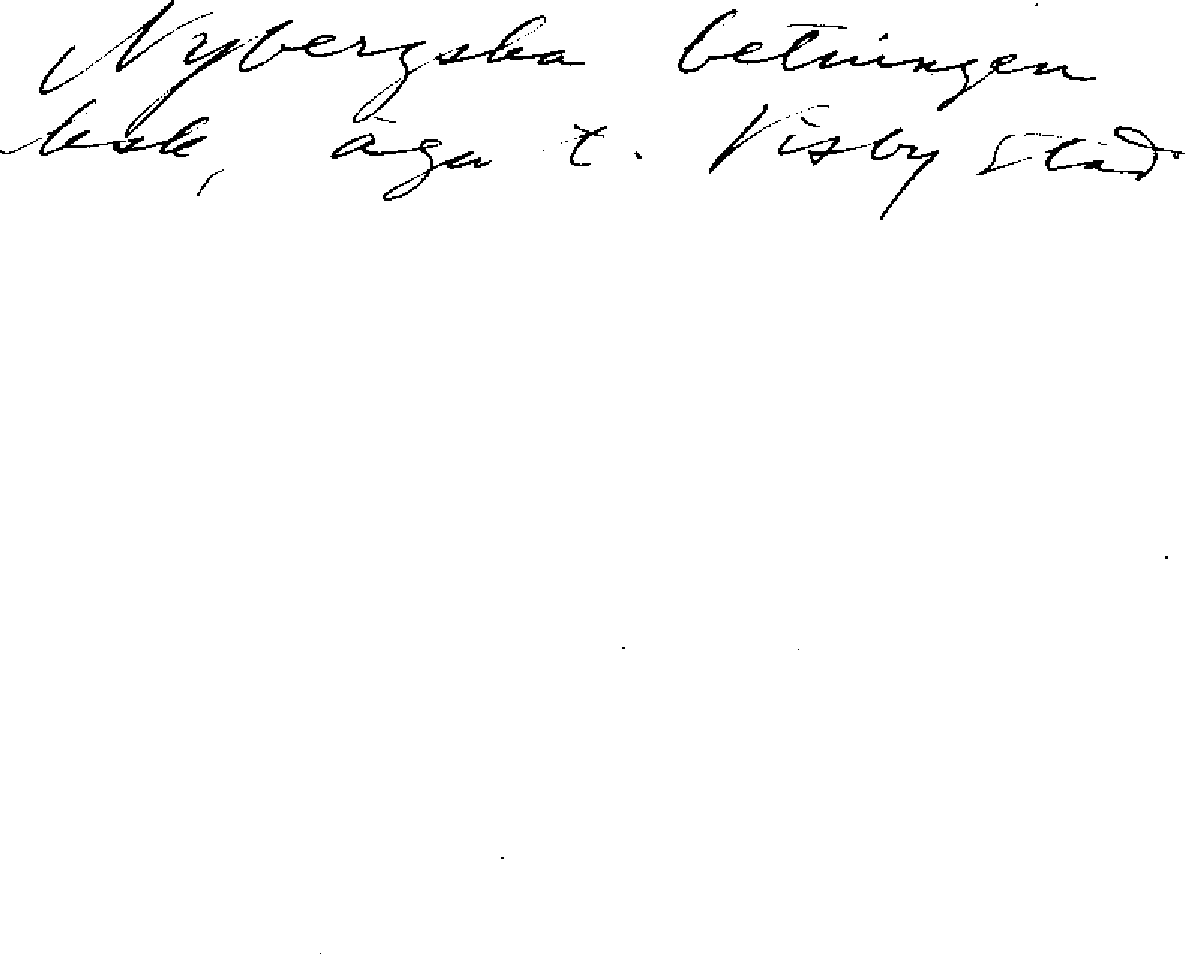 Nybergska betningen
bsk, äga t. Visby stad